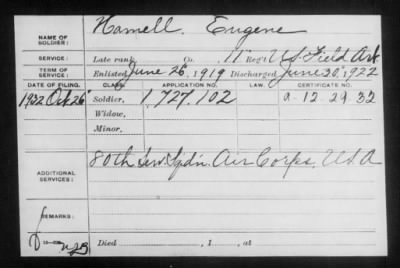 NAME OF SOLDIER: Hamell, Eugene
SERVICE: Late rank, Co. 11" Reg't U.S. Field Art
TERM OF SERVICE: Enlisted June 26", 1919 Discharged June 20", 1922
DATE OF FILING. CLASS. APPLICATION NO. LAW. CERTIFICATE NO.
1932 Oct 26" Soldier, 1,727,102 a-12-29-32
Widow,
Minor,
ADDITIONAL SERVICES: 80th Serv. Sqdn. Air Corps, U.S.A
REMARKS:
Died , 1 , at